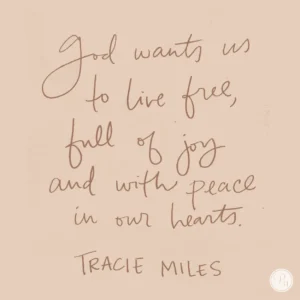 God wants us
to live free,
full of joy
and with peace
in our hearts.
TRACIE MILES